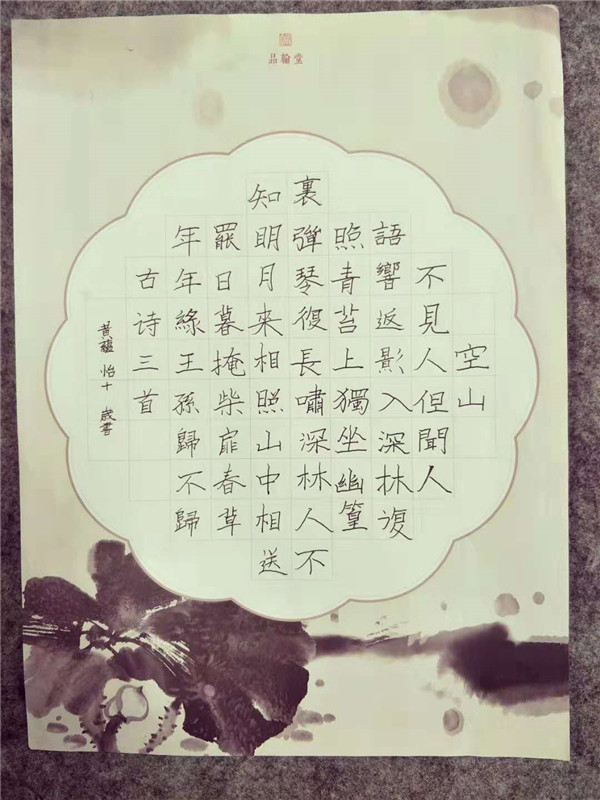 品翰堂
空山
不見人但聞人
語響返影入深林復
照青苔上獨坐幽篁
裏彈琴復長嘯深林人不
知明月来相照山中相送
罷日暮掩柴扉春草
年年綠王孫歸不歸
古诗三首
黄 怡十歲書